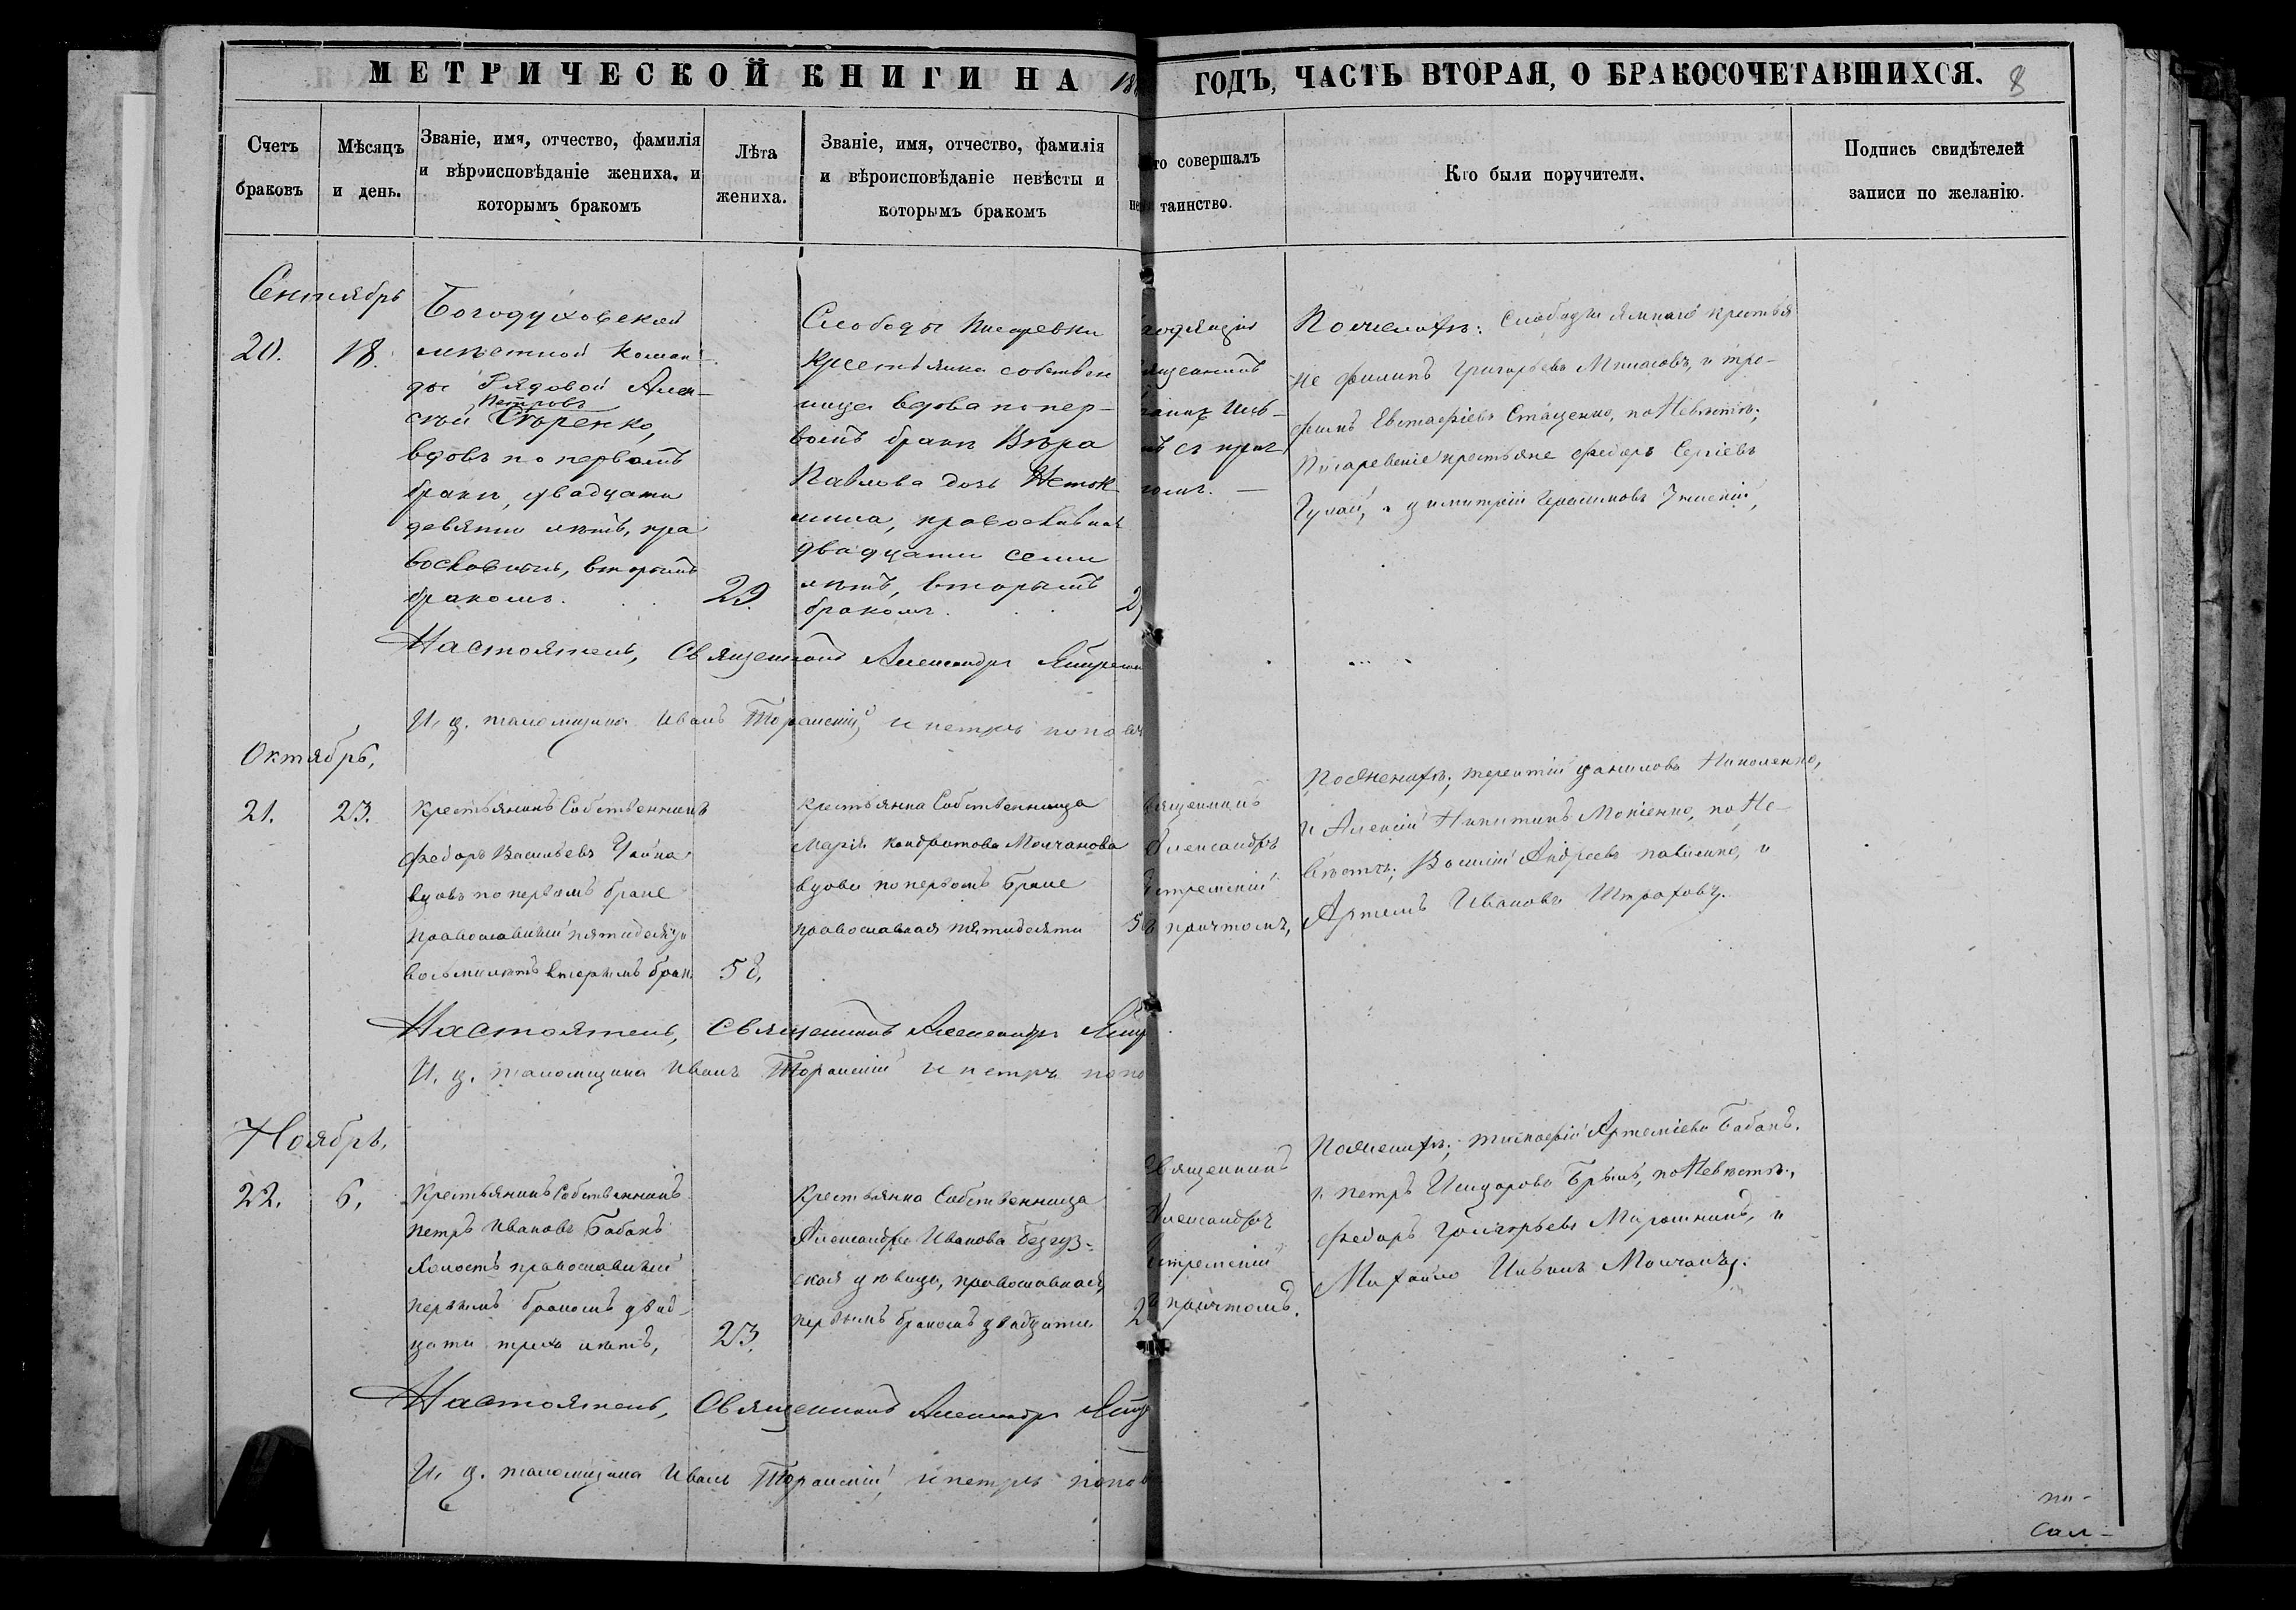 МЕТРИЧЕСКОЙ КНИГИ НА 18
ГОДЪ, ЧАСТЬ ВТОРАЯ, О БРАКОСОЧЕТАВШИХСЯ.
8
Счетъ
браковъ
Мѣсяцъ
и день.
Званіе, имя, отчество, фамилія
и вѣроисповѣданіе жениха, и
которымъ бракомъ
Лѣта
жениха.
Званіе, имя, отчество, фамилія
и вѣроисповѣданіе невѣсты и
которымъ бракомъ
то совершалъ
таинство.
Кто были поручители.
Подпись свидѣтелей
записи по желанію.
Сентябрь
20.
18.
Богодуховской
мѣстной коман-
ды Рядовой Алек-
Петровъ
сѣй Сѣренко,
вдовъ по первомъ
бракѣ, двадцати
девяти лѣтъ, пра
вославный, вторымъ
бракомъ.
29.
Слободы Писаревки
крестьянка собствен
ница вдова по пер-
вомъ бракѣ Вѣра
Павлова дочь
православная
двадцати семи
лѣтъ, вторымъ
бракомъ.
2
съ прич
томъ. —
По женихѣ: Слободы Ямнаго крестья
не Филипъ Григорьевъ и Тро-
фимъ Евстафіевъ Стаценко, по Невѣстѣ;
Писаревскіе крестьяне Федоръ Сергіевъ
Гулай, и Димитрій Герасимовъ
Настоятель, Священникъ Александръ
И. д. псаломщика Иванъ Торанскій, и Петръ Попов
Октябрь,
21.
23.
Крестьянинъ Собственникъ
Федоръ Васильевъ Чайка
вдовъ по первомъ браке
православный пятидесяти
восьми лѣтъ вторымъ брак.
58,
Крестьянка Собственница
Марія Кондратова Молчанова
вдова по первомъ браке
православная пятидесяти
5
вященникъ
Александръ
стремскій
причтомъ,
По Женихѣ; Терентій Даниловъ Николенко,
и Алексій Никитинъ Мокіенко, по Не-
вѣстѣ; Василій Андреевъ Павленко, и
Артемъ Ивановъ Штраховъ.
Настоятель, Священникъ Александръ
И. д. псаломщика Иванъ Торанскій и Петръ Попо
Ноябрь.
22.
6.
Крестьянинъ Собственникъ
Петръ Ивановъ Бабакъ
холостъ православный
первымъ бракомъ двад-
цати трехъ лѣтъ,
23.
Крестьянка Собственница
Александра Иванова Безгуз-
ская дѣвица, православная,
первымъ бракомъ двадцати
2
Священникъ
Александръ
стремскій
причтомъ.
По Женихѣ; Тимофій Артеміевъ Бабакъ.
и Петръ Исидоровъ Брыль, по Невѣстѣ;
Федоръ Григорьевъ Мирошникъ, и
Михайло Ивановъ Молчанъ.
Настоятель, Священникъ Александръ
И. д. псаломщика Иванъ Торанскій, и Петръ Попов
пи-
сал-